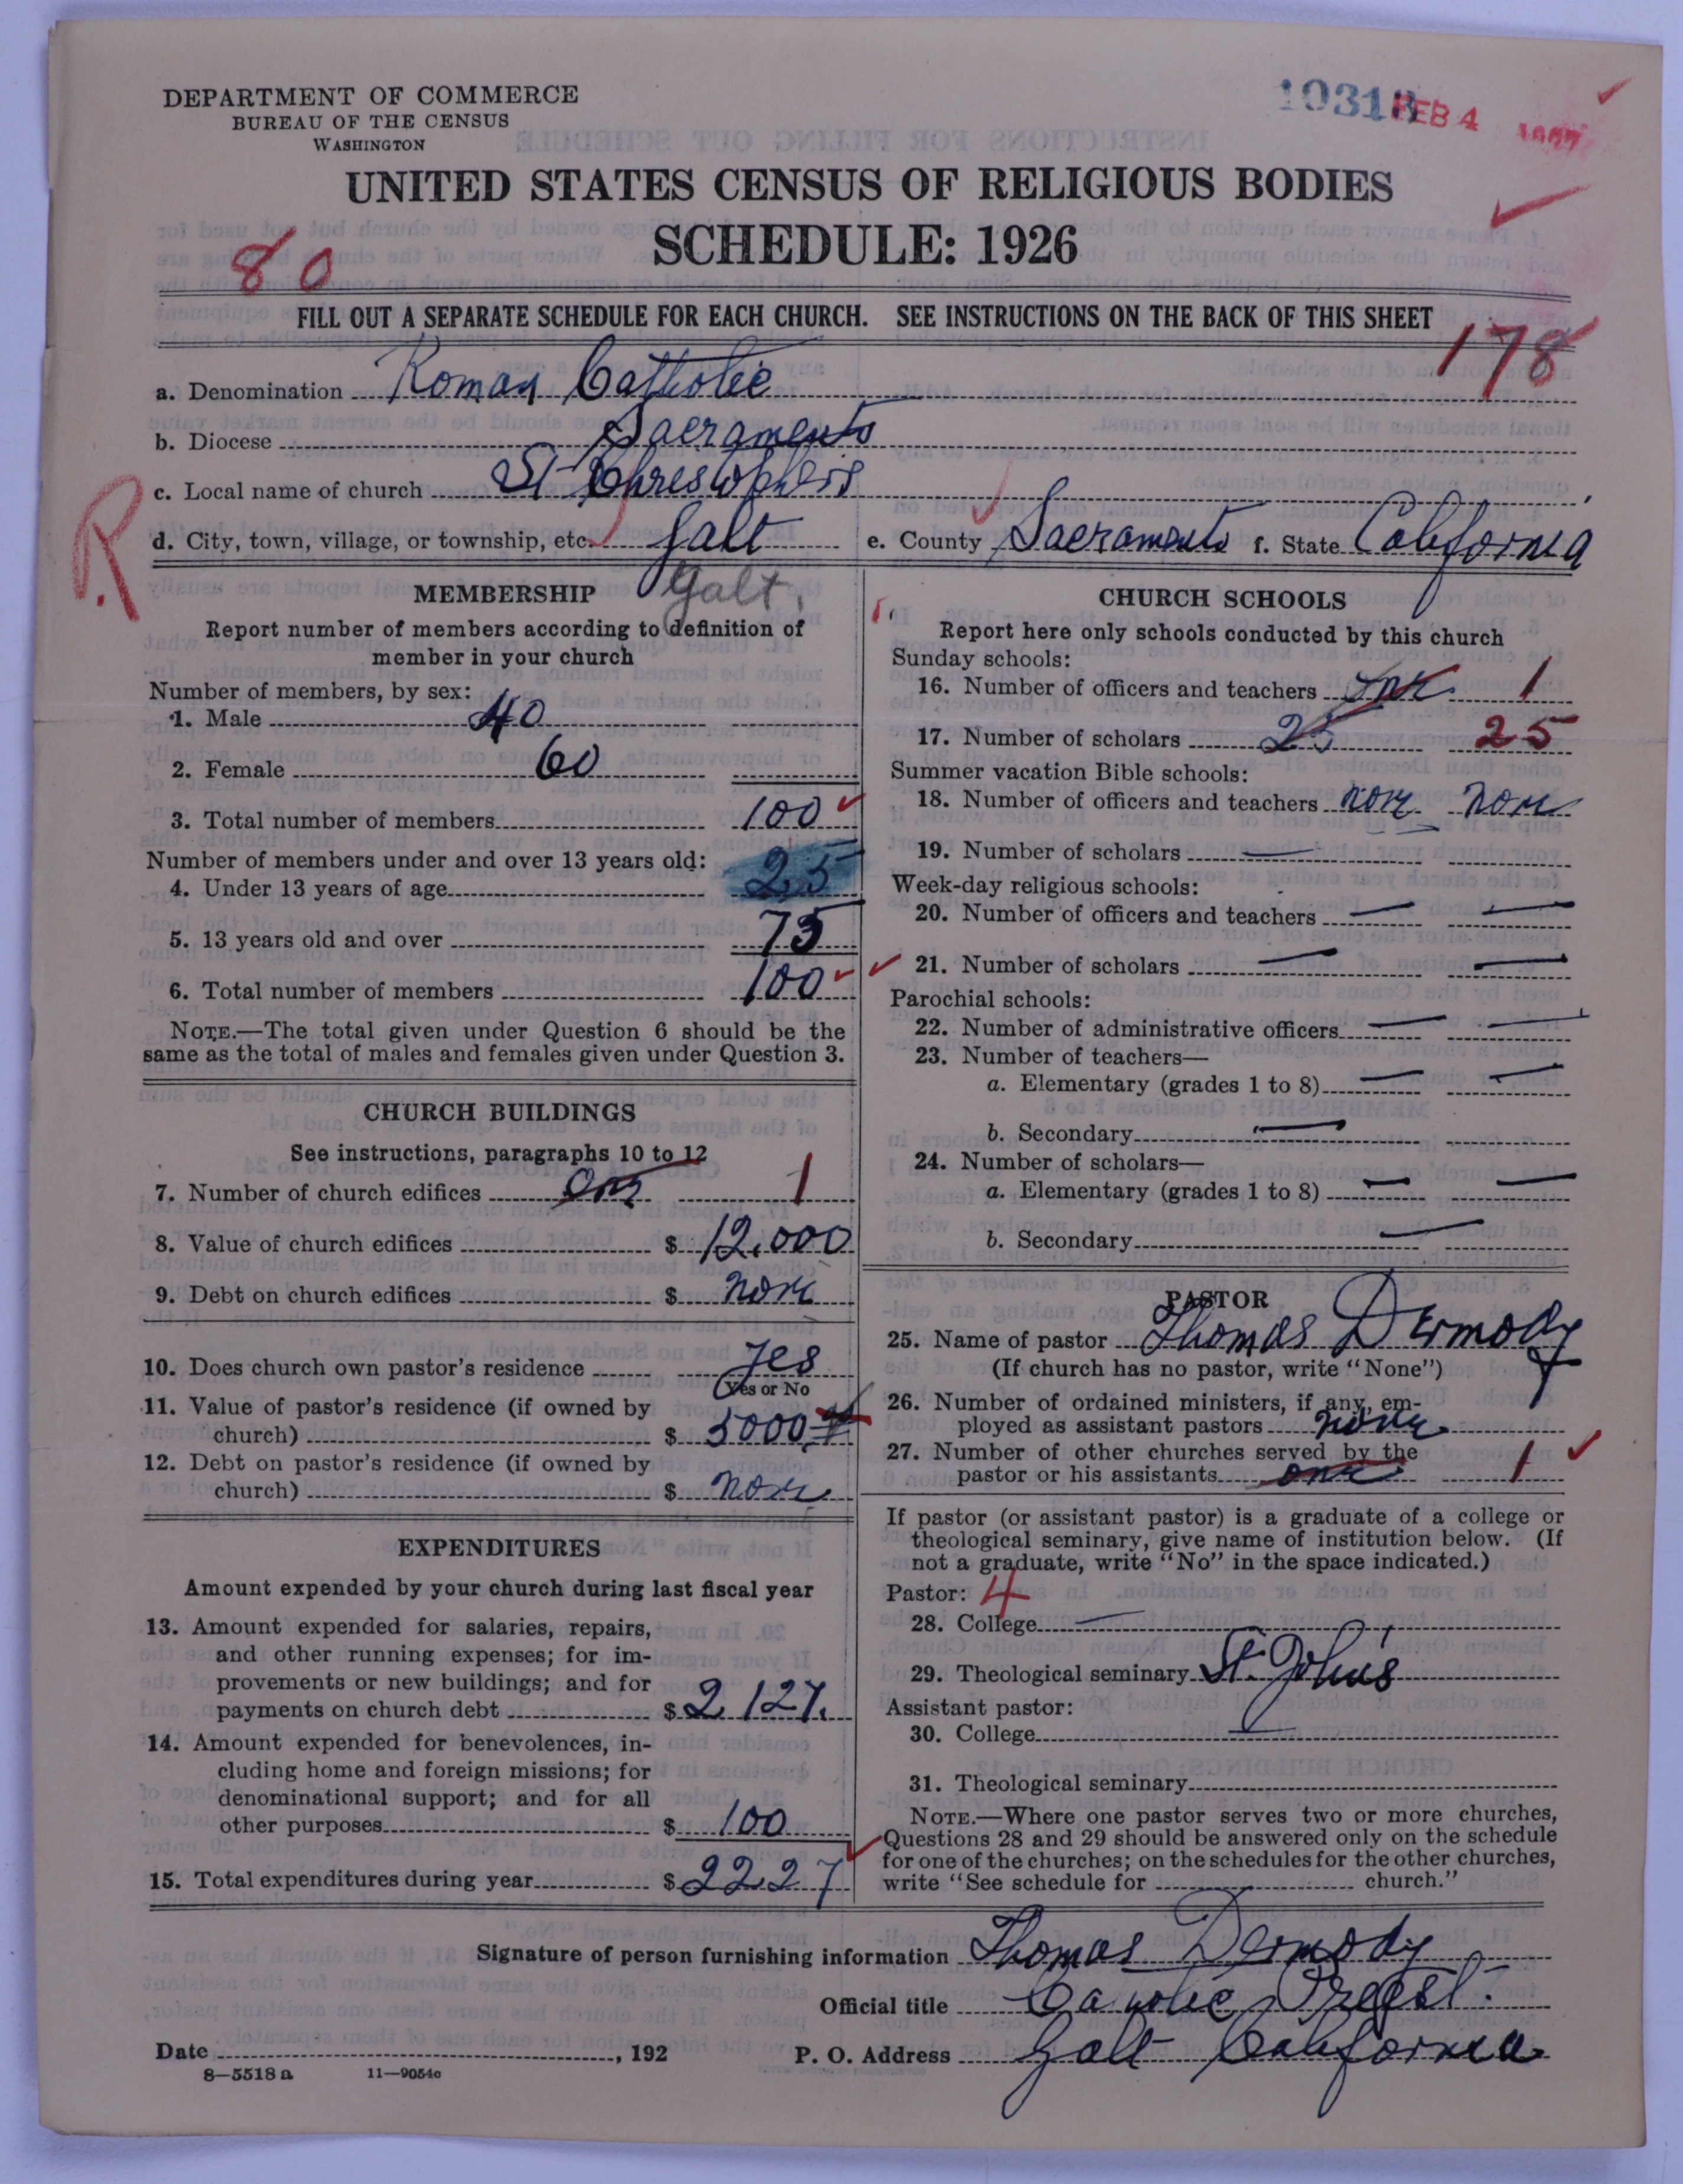 DEPARTMENT OF COMMERCE
BUREAU OF THE CENSUS
WASHINGTON
10313
FEB 4 1927
UNITED STATES CENSUS OF RELIGIOUS BODIES
SCHEDULE: 1926
80
FILL OUT A SEPARATE SCHEDULE FOR EACH CHURCH. SEE INSTRUCTIONS ON THE BACK OF THIS SHEET
178
a. Denomination Roman Catholic
b. Diocese Sacramento
c. Local name of church St Christophers
R.
d. City, town, village, or township, etc. Galt e. County Sacramento f. State California
Galt.
MEMBERSHIP
Report number of members according to definition of
member in your church
Number of members, by sex:
1. Male 40
2. Female 60
3. Total number of members 100
Number of members under and over 13 years old:
4. Under 13 years of age 25
5. 13 years old and over 75
6. Total number of members 100
NOTE.—The total given under Question 6 should be the
same as the total of males and females given under Question 3.
CHURCH BUILDINGS
See instructions, paragraphs 10 to 12
7. Number of church edifices one 1
8. Value of church edifices $ 12,000
9. Debt on church edifices $ none
10. Does church own pastor's residence Yes
Yes or No
11. Value of pastor's residence (if owned by
church) $ 5000
12. Debt on pastor's residence (if owned by
church) $ none
EXPENDITURES
Amount expended by your church during last fiscal year
13. Amount expended for salaries, repairs,
and other running expenses; for im-
provements or new buildings; and for
payments on church debt $ 2,127.
14. Amount expended for benevolences, in-
cluding home and foreign missions; for
denominational support; and for all
other purposes $ 100
15. Total expenditures during year $ 2227
CHURCH SCHOOLS
Report here only schools conducted by this church
Sunday schools:
16. Number of officers and teachers one 1
17. Number of scholars 25 25
Summer vacation Bible schools:
18. Number of officers and teachers none none
19. Number of scholars —
Week-day religious schools:
20. Number of officers and teachers — —
21. Number of scholars — —
Parochial schools:
22. Number of administrative officers — —
23. Number of teachers—
a. Elementary (grades 1 to 8) — —
b. Secondary —
24. Number of scholars—
a. Elementary (grades 1 to 8) — —
b. Secondary —
PASTOR
25. Name of pastor Thomas Dermody
(If church has no pastor, write "None")
26. Number of ordained ministers, if any, em-
ployed as assistant pastors none
27. Number of other churches served by the
pastor or his assistants one 1
If pastor (or assistant pastor) is a graduate of a college or
theological seminary, give name of institution below. (If
not a graduate, write "No" in the space indicated.)
Pastor: 4
28. College —
29. Theological seminary St. John's
Assistant pastor:
30. College —
31. Theological seminary
NOTE.—Where one pastor serves two or more churches,
Questions 28 and 29 should be answered only on the schedule
for one of the churches; on the schedules for the other churches,
write "See schedule for church."
Signature of person furnishing information Thomas Dermody
Official title Catholic Priest.
Date , 192 P. O. Address Galt California
8—5518 a 11—9054c